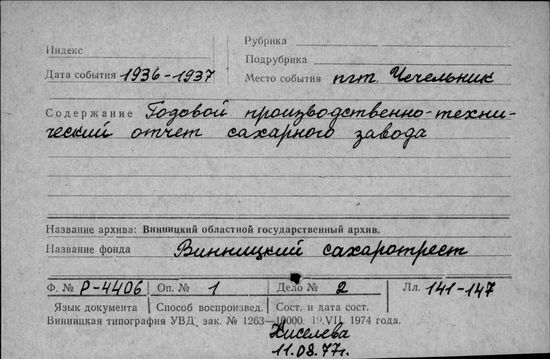 Индекс
Рубрика
Подрубрика
Дата события 1936-1937
Место события пгт. Чечельник
Содержание Годовой производственно-техни-
ческий отчет сахарного завода
Название архива: Винницкий областной государственный архив.
Название фонда Винницкий сахаротрест
Ф. № Р-4406 Оп. № 1 Дело № 2 Лл. 141-147
Язык документа Способ воспроизвед. Сост. и дата сост.
Винницкая типография УВД, зак. № 1263—10000. 19.VII. 1974 года.
Киселева
11.08.77г.